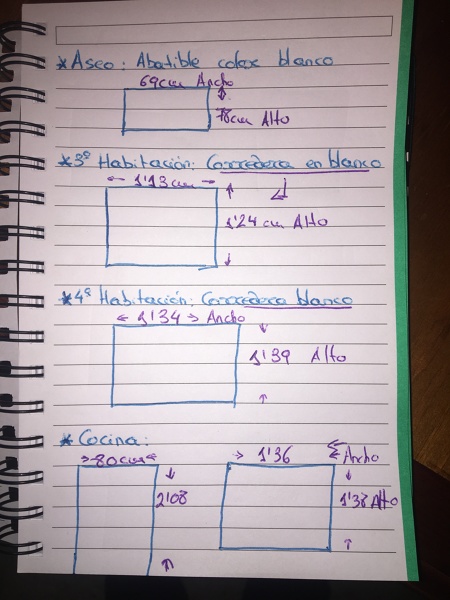 * Aseo: Abatible color blanco
69cm Ancho
78cm Alto
* 3º Habitación: Corredera en blanco
1'13cm
1'24cm Alto
* 4ª Habitación: Corredera blanco
1'34 Ancho
1'39 Alto
* Cocina:
80cm 1'36 Ancho
2'08 1'38 Alto